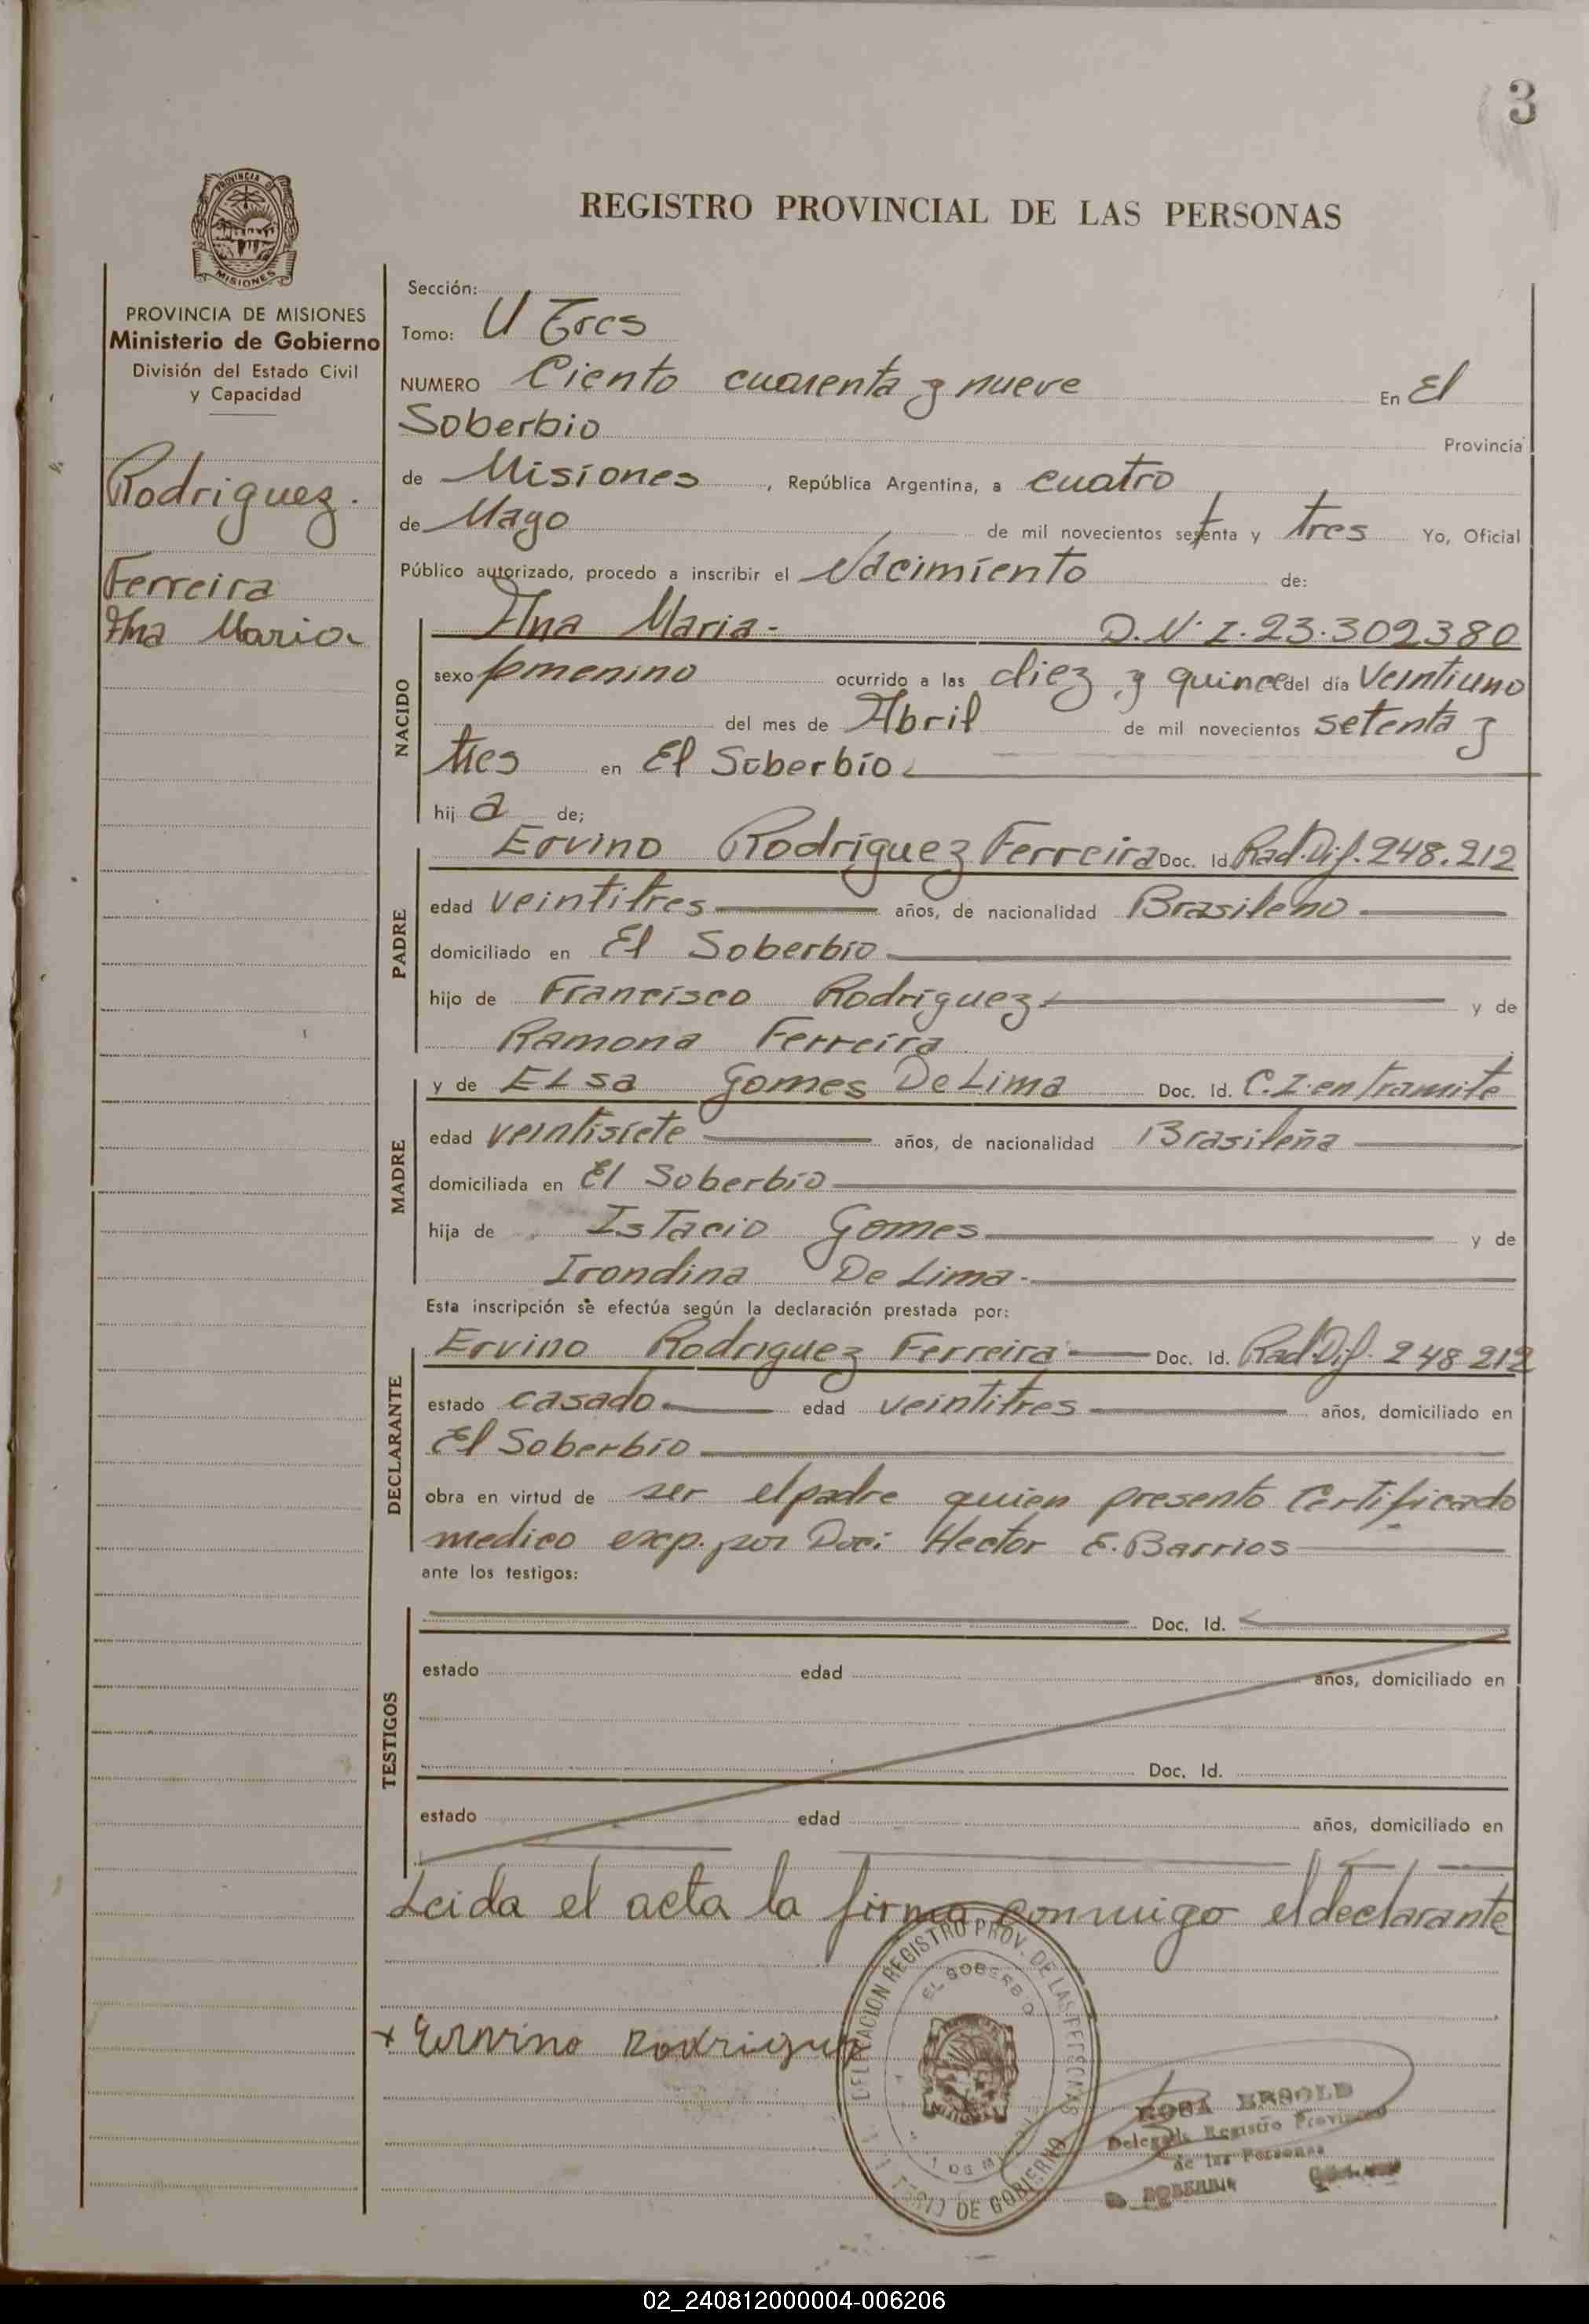 3
PROVINCIA DE
MISIONES
REGISTRO PROVINCIAL DE LAS PERSONAS
PROVINCIA DE MISIONES
Ministerio de Gobierno
División del Estado Civil
y Capacidad
Rodriguez.
Ferreira
Ana Maria
Sección:
Tomo: U Tres
NUMERO Ciento cuarenta y nueve En El
Soberbio Provincia
de Misiones, República Argentina, a cuatro
de Mayo de mil novecientos setenta y tres Yo, Oficial
Público autorizado, procedo a inscribir el Nacimiento de:
NACIDO
Ana Maria- D.N.I.23.302380
sexo femenino ocurrido a las diez y quince del día Veintiuno
del mes de Abril de mil novecientos setenta y
tres en El Soberbio
hij a de;
PADRE
Ervino Rodriguez Ferreira Doc. Id. Rad.Dif.248.212
edad veintitres años, de nacionalidad Brasileño
domiciliado en El Soberbio
hijo de Francisco Rodriguez y de
Ramona Ferreira
MADRE
y de ELsa Gomes De Lima Doc. Id. C.I.en Tramite
edad veintisiete años, de nacionalidad Brasileña
domiciliada en El Soberbio
hija de IsTacio Gomes y de
Irondina De Lima.
Esta inscripción se efectúa según la declaración prestada por:
DECLARANTE
Ervino Rodriguez Ferreira Doc. Id. Rad.Dif. 248 212
estado casado edad veintitres años, domiciliado en
El Soberbio
obra en virtud de ser el padre quien presento Certificado
medico exp. por Doc: Hector E. Barrios
ante los testigos:
TESTIGOS
Doc. Id.
estado edad años, domiciliado en
Doc. Id.
estado edad años, domiciliado en
Leida el acta la firma conmigo el declarante
DELEGACION REGISTRO PROV. DE LAS PERSONAS
EL SOBERBIO
DE GOBIERNO
x Ervino Rodriguez
ROSA
Delegada Registro Provincial
de las Personas
SOBERBIO
02_240812000004-006206